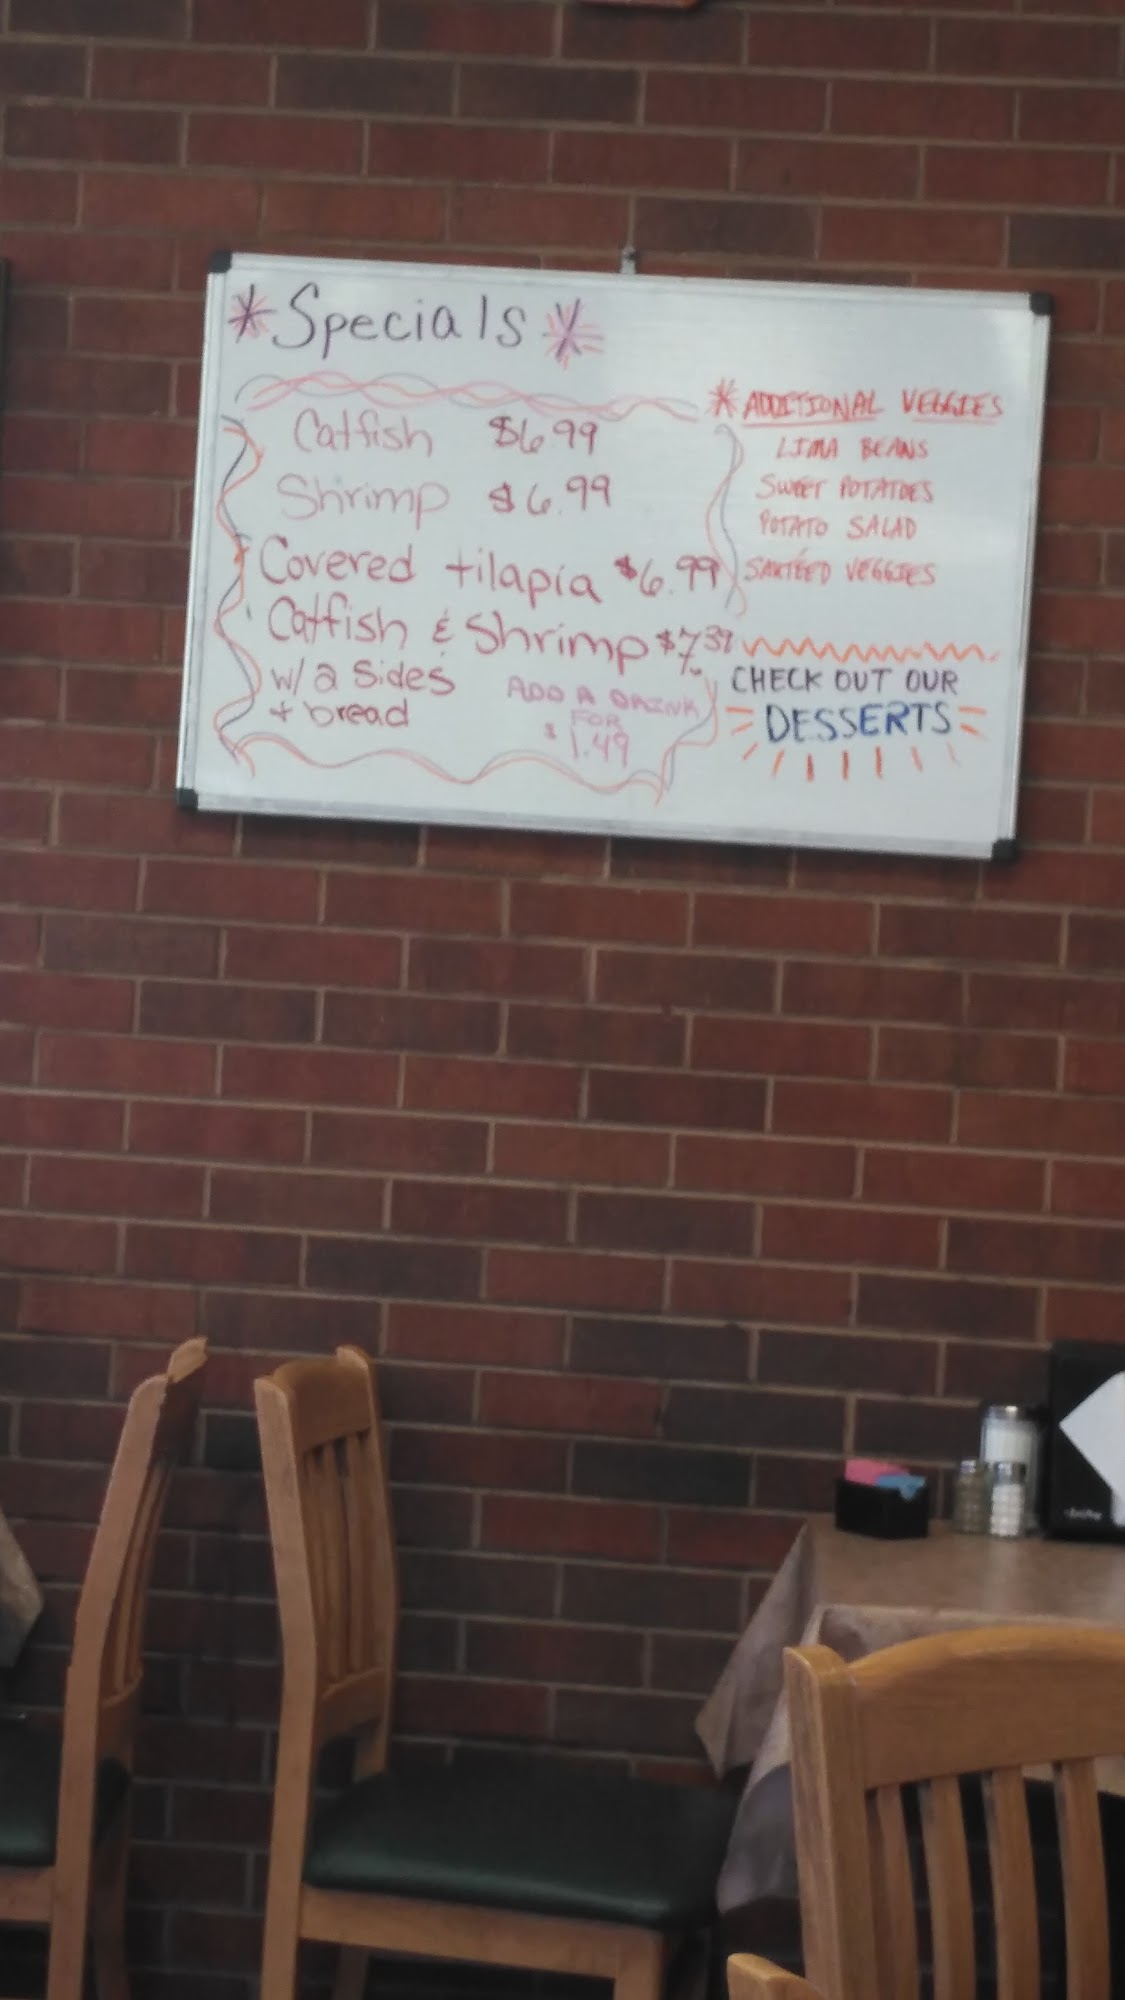 *Specials*
Catfish $6.99
Shrimp $6.99
Covered tilapia $6.99
Catfish & Shrimp $7.39
w/2 Sides
+ bread
ADD A DRINK
FOR
$1.49
*ADDITIONAL VEGGIES
LIMA BEANS
SWEET POTATOES
POTATO SALAD
SAUTÉED VEGGIES
CHECK OUT OUR
DESSERTS